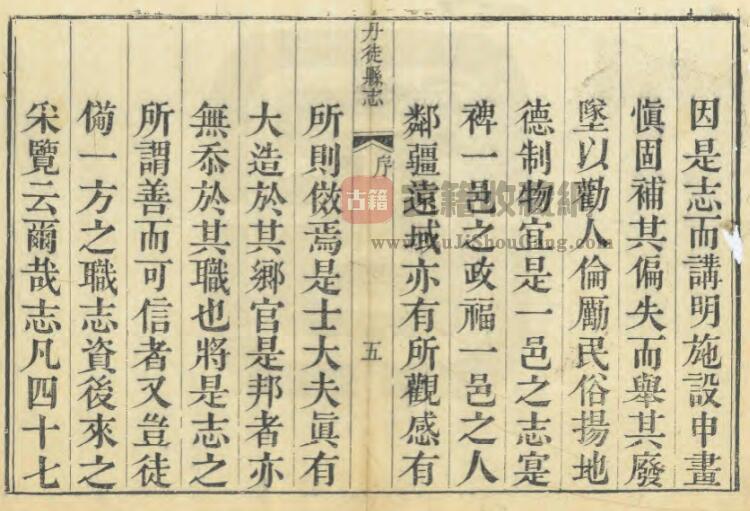 因是志而講明施設申畫
愼固補其偏失而舉其廢
墜以勸人倫勵民俗揚地
德制物宜是一邑之志寔
裨一邑之政福一邑之人
鄰疆遠域亦有所觀感有
丹徒縣志
序
五
所則傚焉是士大夫眞有
大造於其鄉官是邦者亦
無忝於其職也將是志之
所謂善而可信者又豈徒
備一方之職志資後來之
采覽云爾哉志凡四十七
古籍
古籍收藏網
www.GuJiShouCang.com